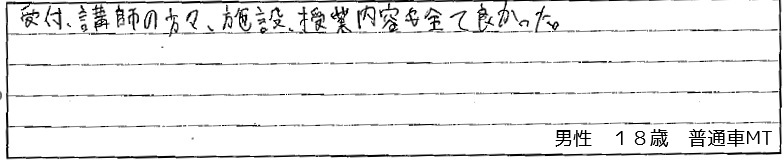 受付、講師の方々、施設、授業内容も全て良かった。
男性　１８歳　普通車MT